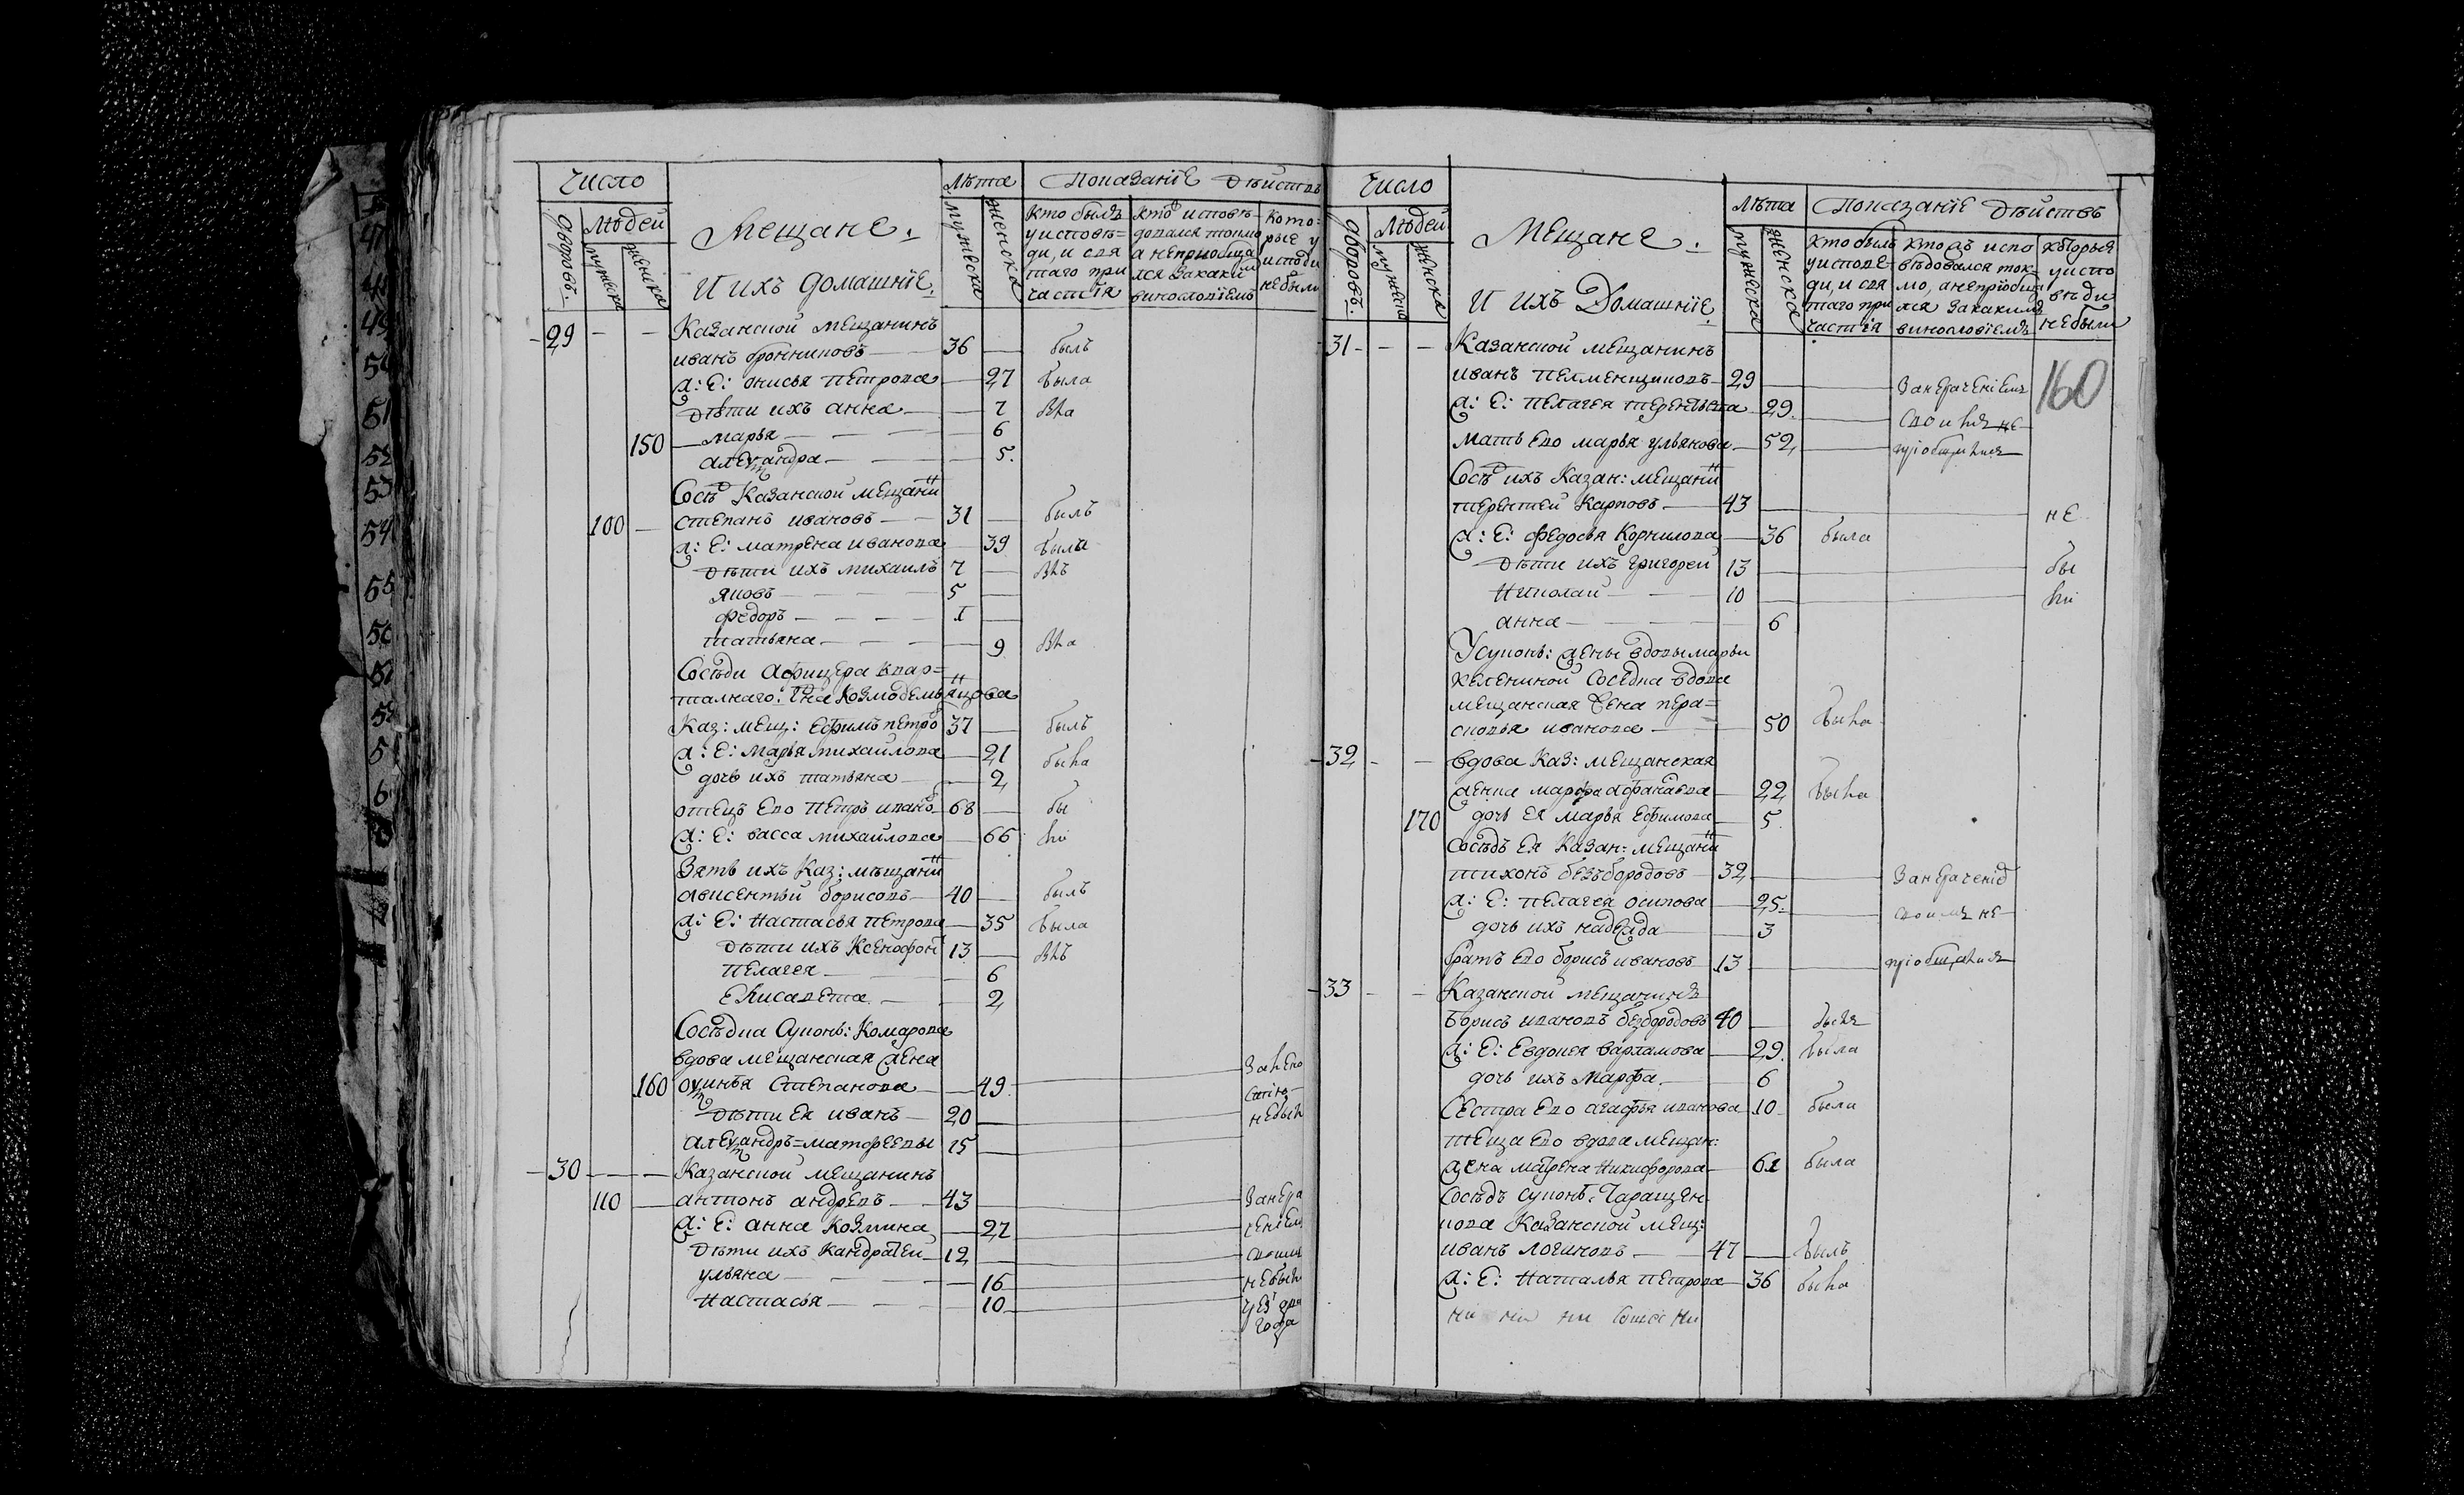 Число
Людей
дворовъ.
мужеска
женска
Мещане.
И ихъ домашніе.
Лѣта
мужеска
женска
Показаніе дѣйствъ
Кто былъ
у исповѣ=
ди, и свя
таго при
частія
Кто исповѣ-
довался токмо
а непріобща
лся закаки
винословіемъ
Кото-
рые у
исповди
небыли
29 Казанской мещанинъ
иванъ бронниковъ 36 былъ
ж: Е: анисья Петрова 27 была
дѣти ихъ анна 7 вла
марья 6
150 александра 5.
Сосѣд Казанской мещани
100 степанъ ивановъ 31 былъ
ж: Е: матрена иванова 39 была
дѣти ихъ михаилъ 7 влъ
яковъ 5
федоръ 1
татьяна 9 вла
Сосѣди Афицера квар=
талнаго:
Каз: мещ: Ефимъ петро 37 былъ
ж: Е: Марья михайлова 21 была
дочь ихъ татьяна 2
отецъ Ево петръ ивано 68 бы
ж: Е: васса михайлова 66 ли
Зять ихъ Каз: мѣщани
авксентѣй борисовъ 40 былъ
ж: Е: Настасья петрова 35 была
дѣти ихъ Ксенофон 13 влъ
Пелагея 6
Елисавета 2
Сосѣдка Сукон: Комарова
вдова мещанская жена
160 Степанова 49
дѣти Ея иванъ 20 небыл
александръ=матфеевы 15
30 Казанской мещанинъ
110 антонъ андревъ 43 Занера
ж: Е: анна Козмина 27 ченiем
дѣти ихъ Кандратей 12 своим
ульяна 16 небыл
Настасья 10
года
Число
Людей
дворовъ.
мужеска
женска
Мещане.
И ихъ Домашніе.
Лѣта
мужеска
женска
Показаніе дѣйствъ
Кто былъ
у испове-
ди, и свя
таго при
частія
Кто въ испо
вѣдовался ток-
мо, а непріобща
лся закакимъ
винословіемъ
Которыя
у испо
вѣди
небыли
160
31 Казанской мещанинъ
иванъ пелменщиковъ 29 Занераченіемъ
ж: Е: Пелагея терентьева 29 своимъ не
мать Ево марья ульянова 52 пріобщился
Сосѣд ихъ Казан: мещани
терентей Карповъ 43 не
ж: Е: федосья Корнилова 36 была
дѣти ихъ григорей 13 бы
Николай 10 ли
анна 6
У сукон: жены вдовы марьи
Сосѣдка вдова
мещанская жена пера=
сковья иванова 50 была
32 вдова Каз: мещанская
женка марфа афанасва 22 была
170 дочь ея марья Ефимова 5
Сосѣдъ Ея Казан: мещани
тихонъ безъбородовъ 32 Занераченіе
ж: Е: пелагея осипова 25 своимъ не
дочь ихъ надежда 3
братъ Ево борисъ ивановъ 13 пріобщился
33 Казанской мещанинъ
Борисъ ивановъ безбородовъ 40 былъ
ж: Е: Евдокея варламова 29 была
дочь ихъ Марфа 6
Сестра Ево агафья иванова 10 была
теща Ево вдова мещан:
жена матрена никифорова 61 была
Сосѣдъ сукон:
Казанской мещ:
иванъ логиновъ 47 былъ
ж: Е: Наталья петрова 36 была